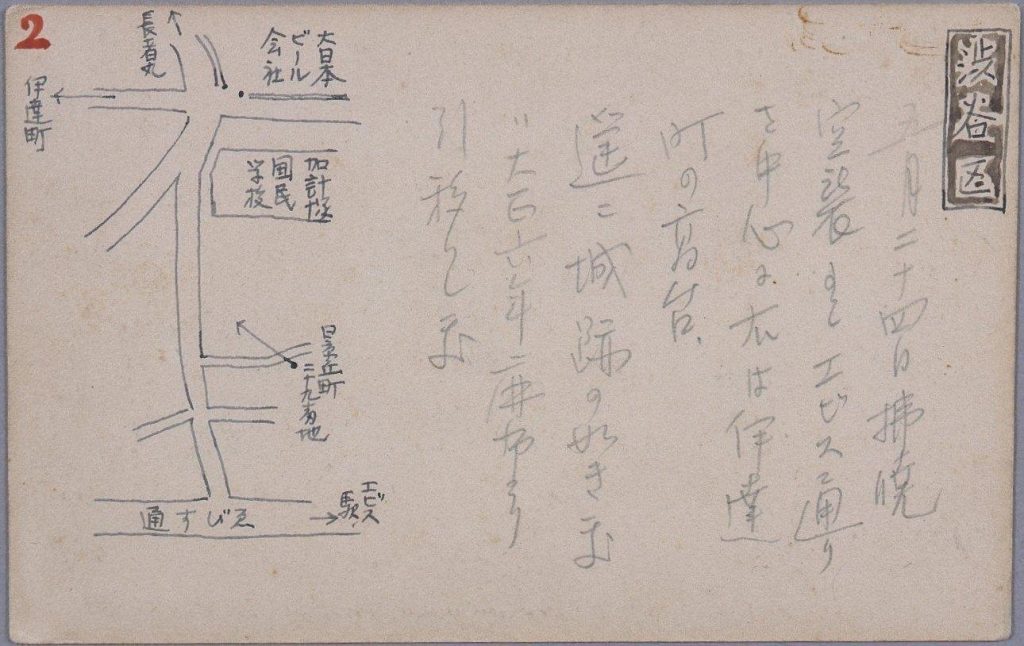 渋谷区
五月二十四日拂暁
空襲 エビス通り
を中心に右は伊達
町の高台、
遥に城跡の如き
大正六年二麻布より
引移し
2
大日本
ビール
会社
長者丸
伊達町
加計塚
国民
学校
景丘町
二十九番地
エビス
駅
ゑびす通